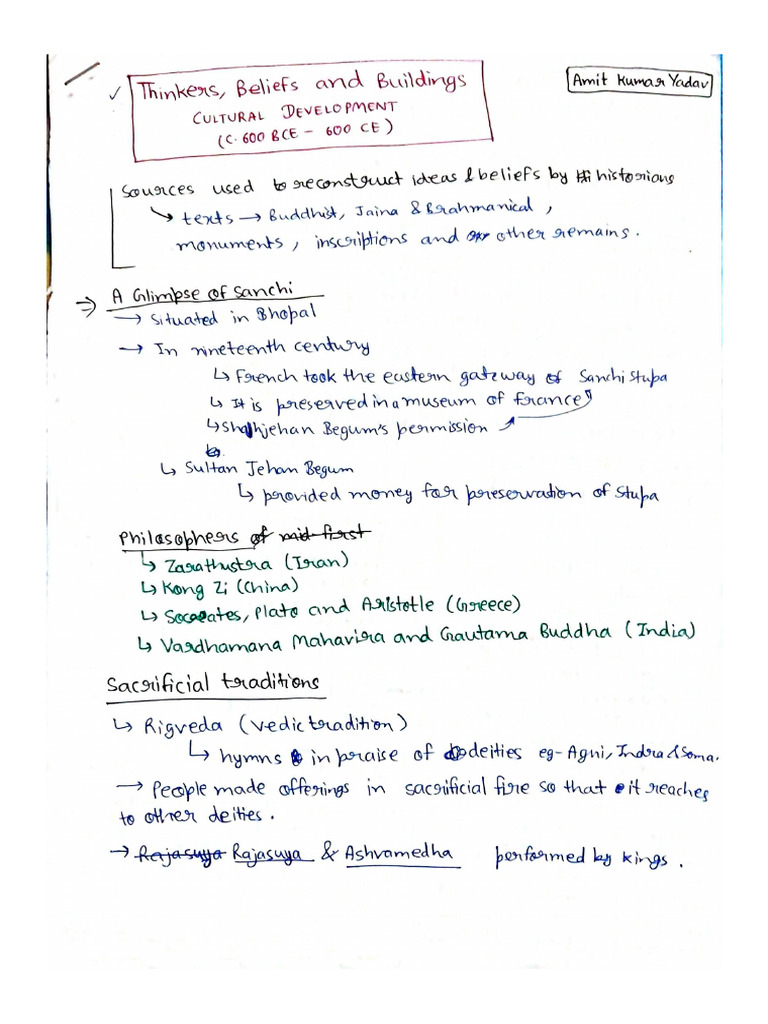 Thinkers, Beliefs and Buildings
CULTURAL DEVELOPMENT
(C. 600 BCE – 600 CE)
Amit Kumar Yadav
Sources used to reconstruct ideas & beliefs by historians
↳ texts → Buddhist, Jaina & Brahmanical,
monuments, inscriptions and other remains.
⇒ A Glimpse of Sanchi
→ Situated in Bhopal
→ In nineteenth century
↳ French took the eastern gatzway of Sanchi Stupa
↳ It is preserved in a museum of france
↳ Shahjehan Begum's permission
↳ Sultan Jehan Begum
↳ provided money for preservation of Stupa
Philosophers of mid-first
↳ Zarathustra (Iran)
↳ Kong Zi (China)
↳ Socrates, Plato and Aristotle (Greece)
↳ Vardhamana Mahavira and Gautama Buddha (India)
Sacrificial traditions
↳ Rigveda (Vedic tradition)
↳ hymns in praise of deities eg- Agni, Indra & Soma.
→ People made offerings in sacrificial fire so that it reaches
to other deities.
→ Rajasuya Rajasuya & Ashvamedha performed by kings.